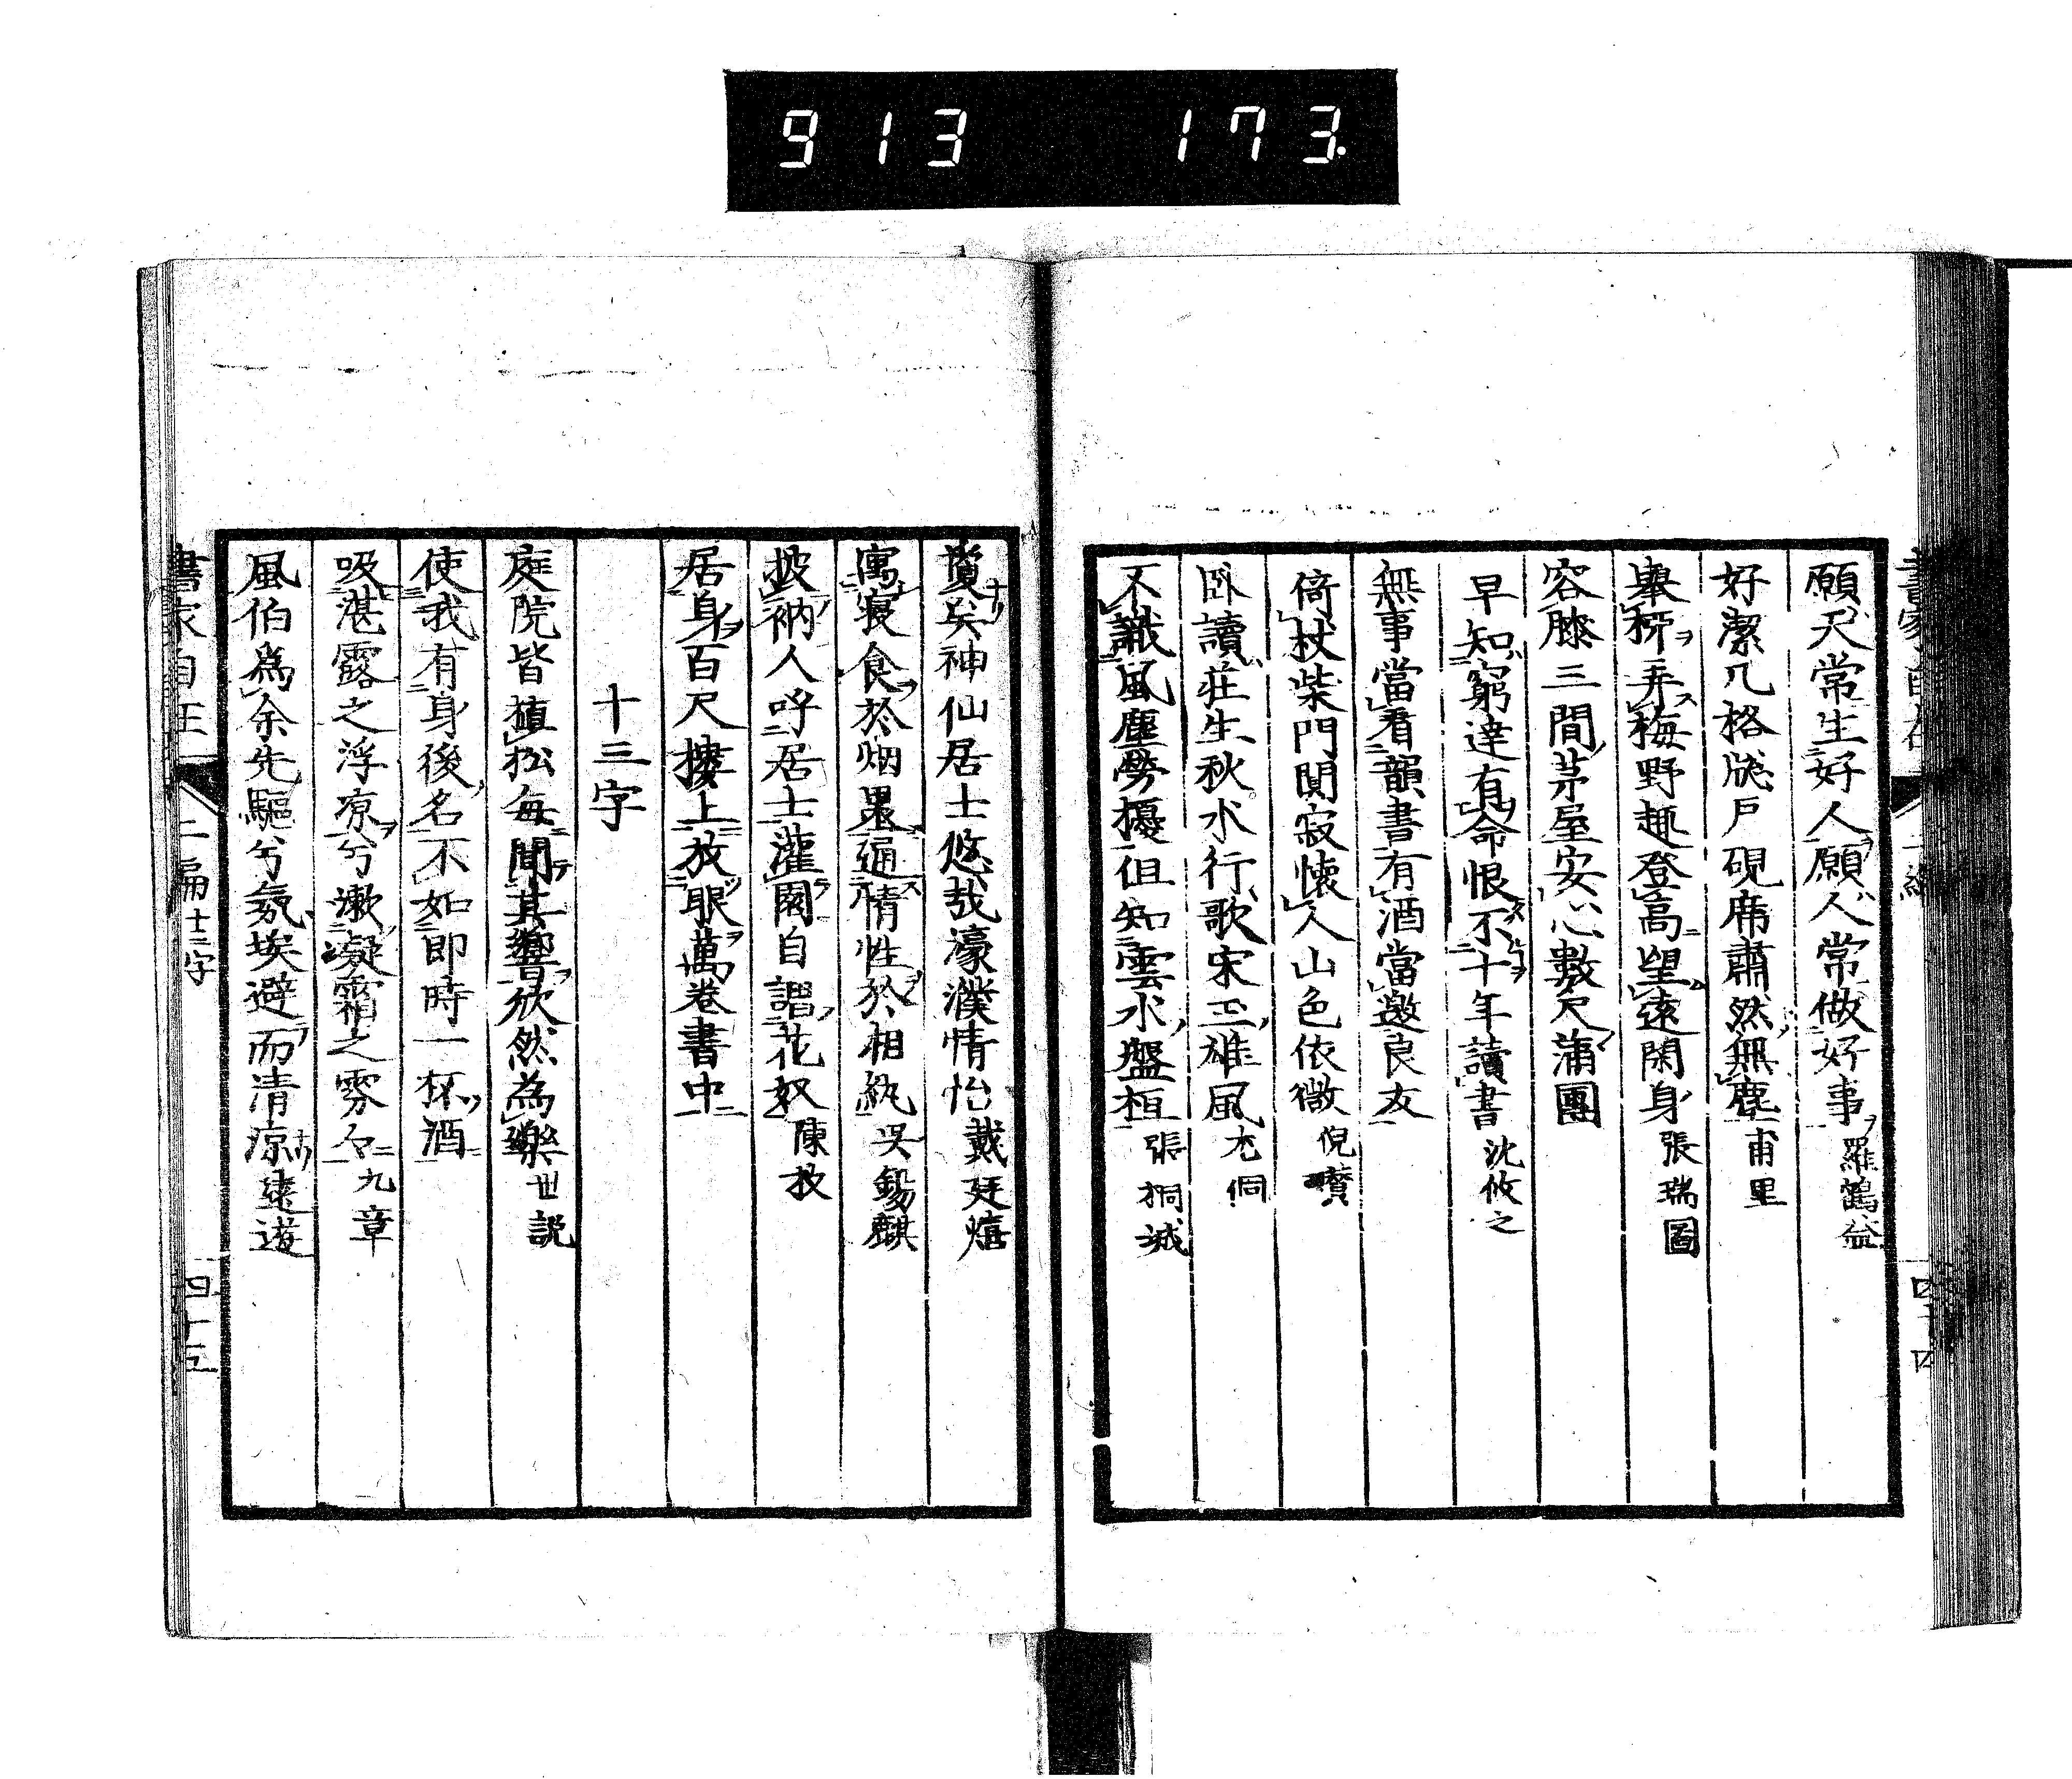 913 173.
願天常生好人願人常做好事 羅鶴益
好潔几格牕戶硯席肅然無塵 甫里
弄梅野趣登高望遠閑身 張瑞圖
容膝三間茅屋安心數尺蒲團
早知窮達有命恨不十年讀書 沈攸之
無事當看韻書有酒當邀良友
倚杖柴門闃寂懷人山色依微 倪瓚
臥讀莊生秋水行歌宋玉雄風 尤侗
不識風塵勞擾但知雲水盤桓 張
賢矣神仙居士悠哉濠濮情怡 戴廷
寓寝食於烟墨通情性於相紈 吳錫麒
披衲人呼居士灌園自謂花奴 陳
居身百尺樓上放眼萬卷書中
十三字
庭院皆植松每聞其響欣然為樂 世說
使我有身後名不如即時一杯酒
吸湛露之浮凉兮漱凝霜之雰々 九章
風伯為余先驅兮氛埃避而清凉 遠遊
書家自在 二編 十三字 四十五